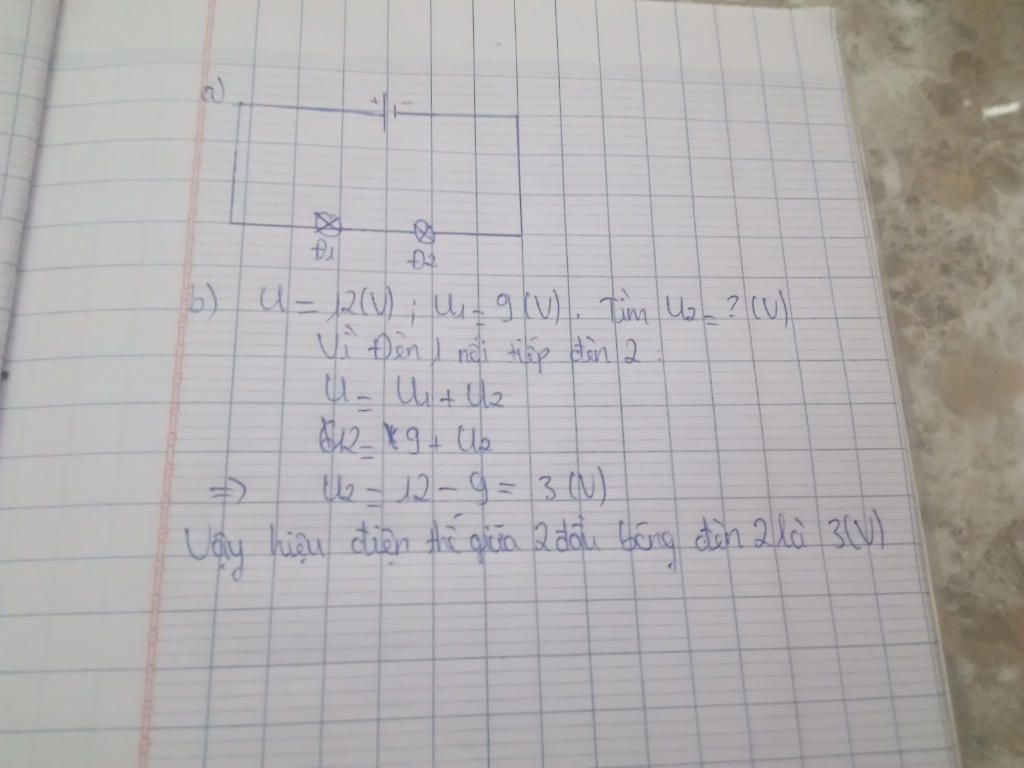 a)
+ -
Đ1 Đ2
b) U = 12(V) ; U1 = 9 (V). Tìm U2 = ? (V)
Vì Đèn 1 nối tiếp đèn 2 :
U = U1 + U2
12 = 9 + U2
=> U2 = 12 - 9 = 3 (V)
Vậy hiệu điện thế giữa 2 đầu bóng đèn 2 là 3(V)